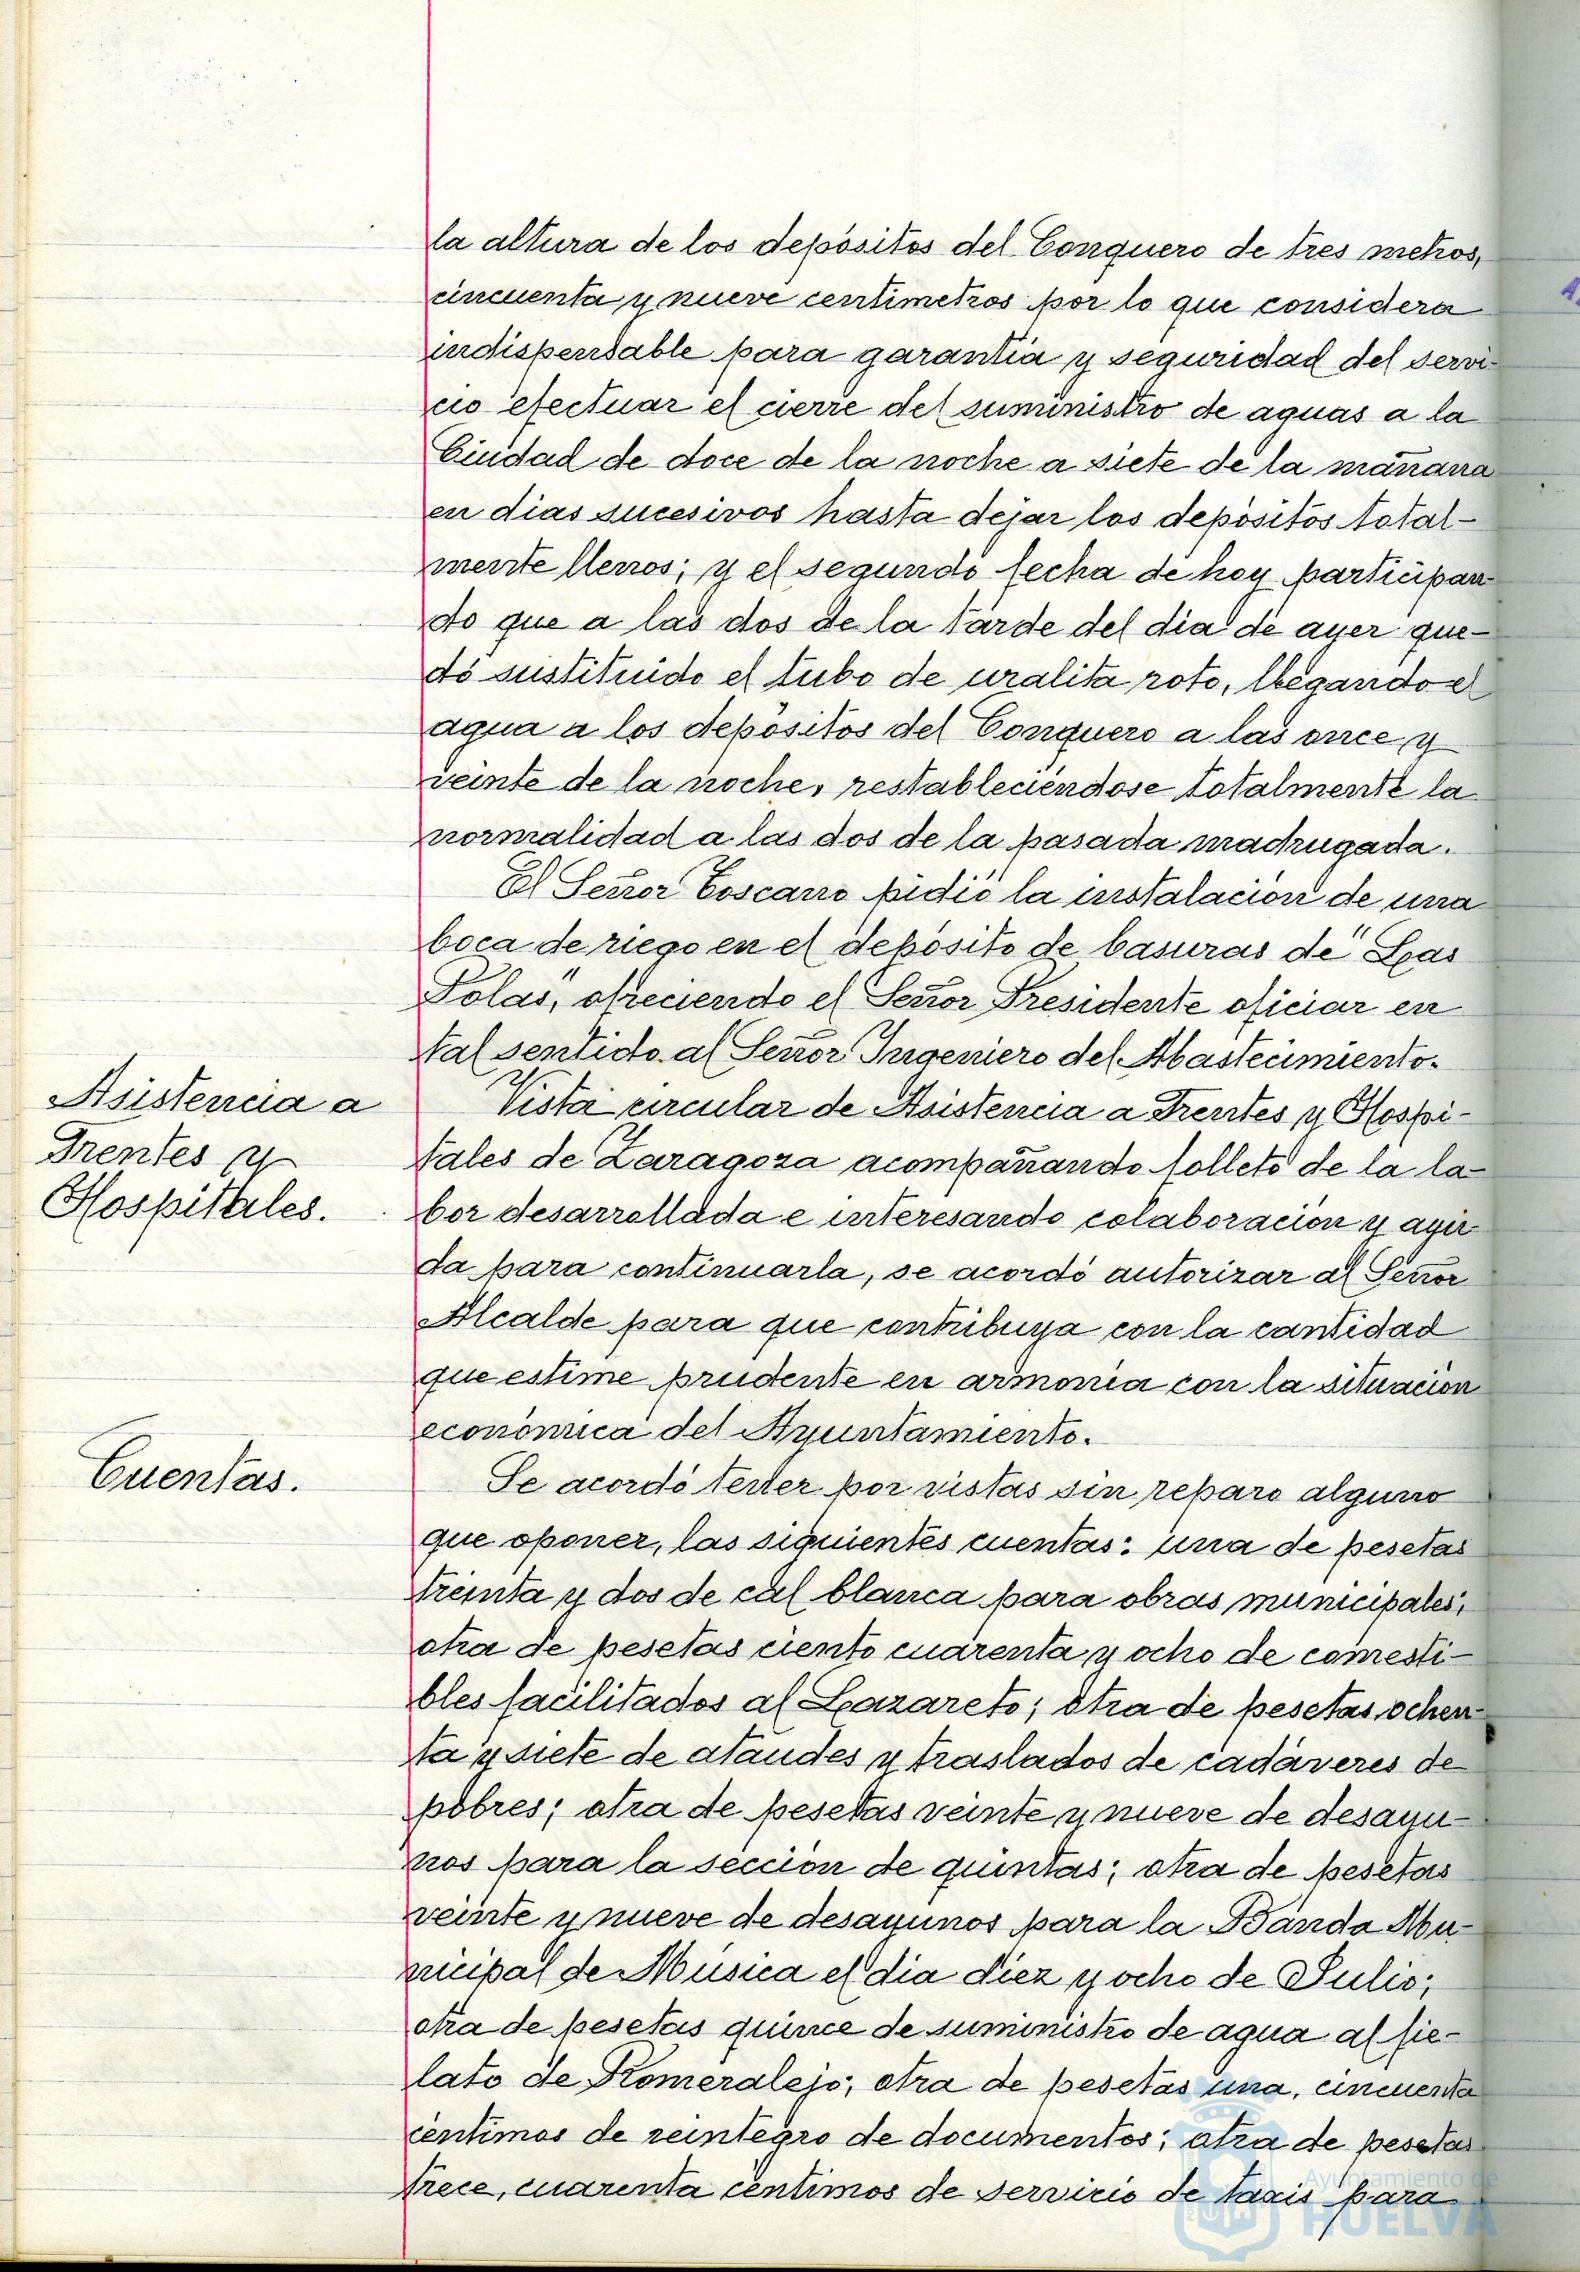 la altura de los depósitos del Conquero de tres metros,
cincuenta y nueve centimetros por lo que considera
indispensable para garantía y seguridad del servi-
cio efectuar el cierre del suministro de aguas a la
Ciudad de doce de la noche a siete de la mañana
en dias sucesivos hasta dejar los depósitos total-
mente llenos; y el segundo fecha de hoy participan-
do que a las dos de la tarde del dia de ayer que-
dó sustituido el tubo de uralita roto, llegando el
agua a los depósitos del Conquero a las once y
veinte de la noche, restableciéndose totalmente la
normalidad a las dos de la pasada madrugada.
El Señor Toscano pidió la instalación de una
boca de riego en el depósito de basuras de "Las
Polas", ofreciendo el Señor Presidente oficiar en
tal sentido al Señor Ingeniero del Abastecimiento.
Asistencia a
Frentes y
Hospitales.
Vista circular de Asistencia a Frentes y Hospi-
tales de Zaragoza acompañando folleto de la la-
bor desarrollada e interesando colaboración y ayu-
da para continuarla, se acordó autorizar al Señor
Alcalde para que contribuya con la cantidad
que estime prudente en armonía con la situación
económica del Ayuntamiento.
Cuentas.
Se acordó tener por vistas sin reparo alguno
que oponer, las siguientes cuentas: una de pesetas
treinta y dos de cal blanca para obras municipales;
otra de pesetas ciento cuarenta y ocho de comesti-
bles facilitados al Lazareto; otra de pesetas ochen-
ta y siete de ataudes y traslados de cadáveres de
pobres; otra de pesetas veinte y nueve de desayu-
nos para la sección de quintas; otra de pesetas
veinte y nueve de desayunos para la Banda Mu-
nicipal de Música el dia diez y ocho de Julio;
otra de pesetas quince de suministro de agua al fie-
lato de Romeralejo; otra de pesetas una, cincuenta
céntimos de reintegro de documentos; otra de pesetas
trece, cuarenta céntimos de servicio de taxis para
Ayuntamiento de
HUELVA